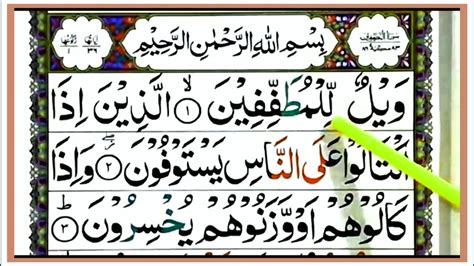 بِسْمِ اللهِ الرَّحْمٰنِ الرَّحِيْمِ
وَيْلٌ لِّلْمُطَفِّفِيْنَ ۙ ١ الَّذِيْنَ اِذَا
اكْتَالُوْا عَلَى النَّاسِ يَسْتَوْفُوْنَ ٢ وَاِذَا
كَالُوْهُمْ اَوْ وَّزَنُوْهُمْ يُخْسِرُوْنَ ؕ ٣